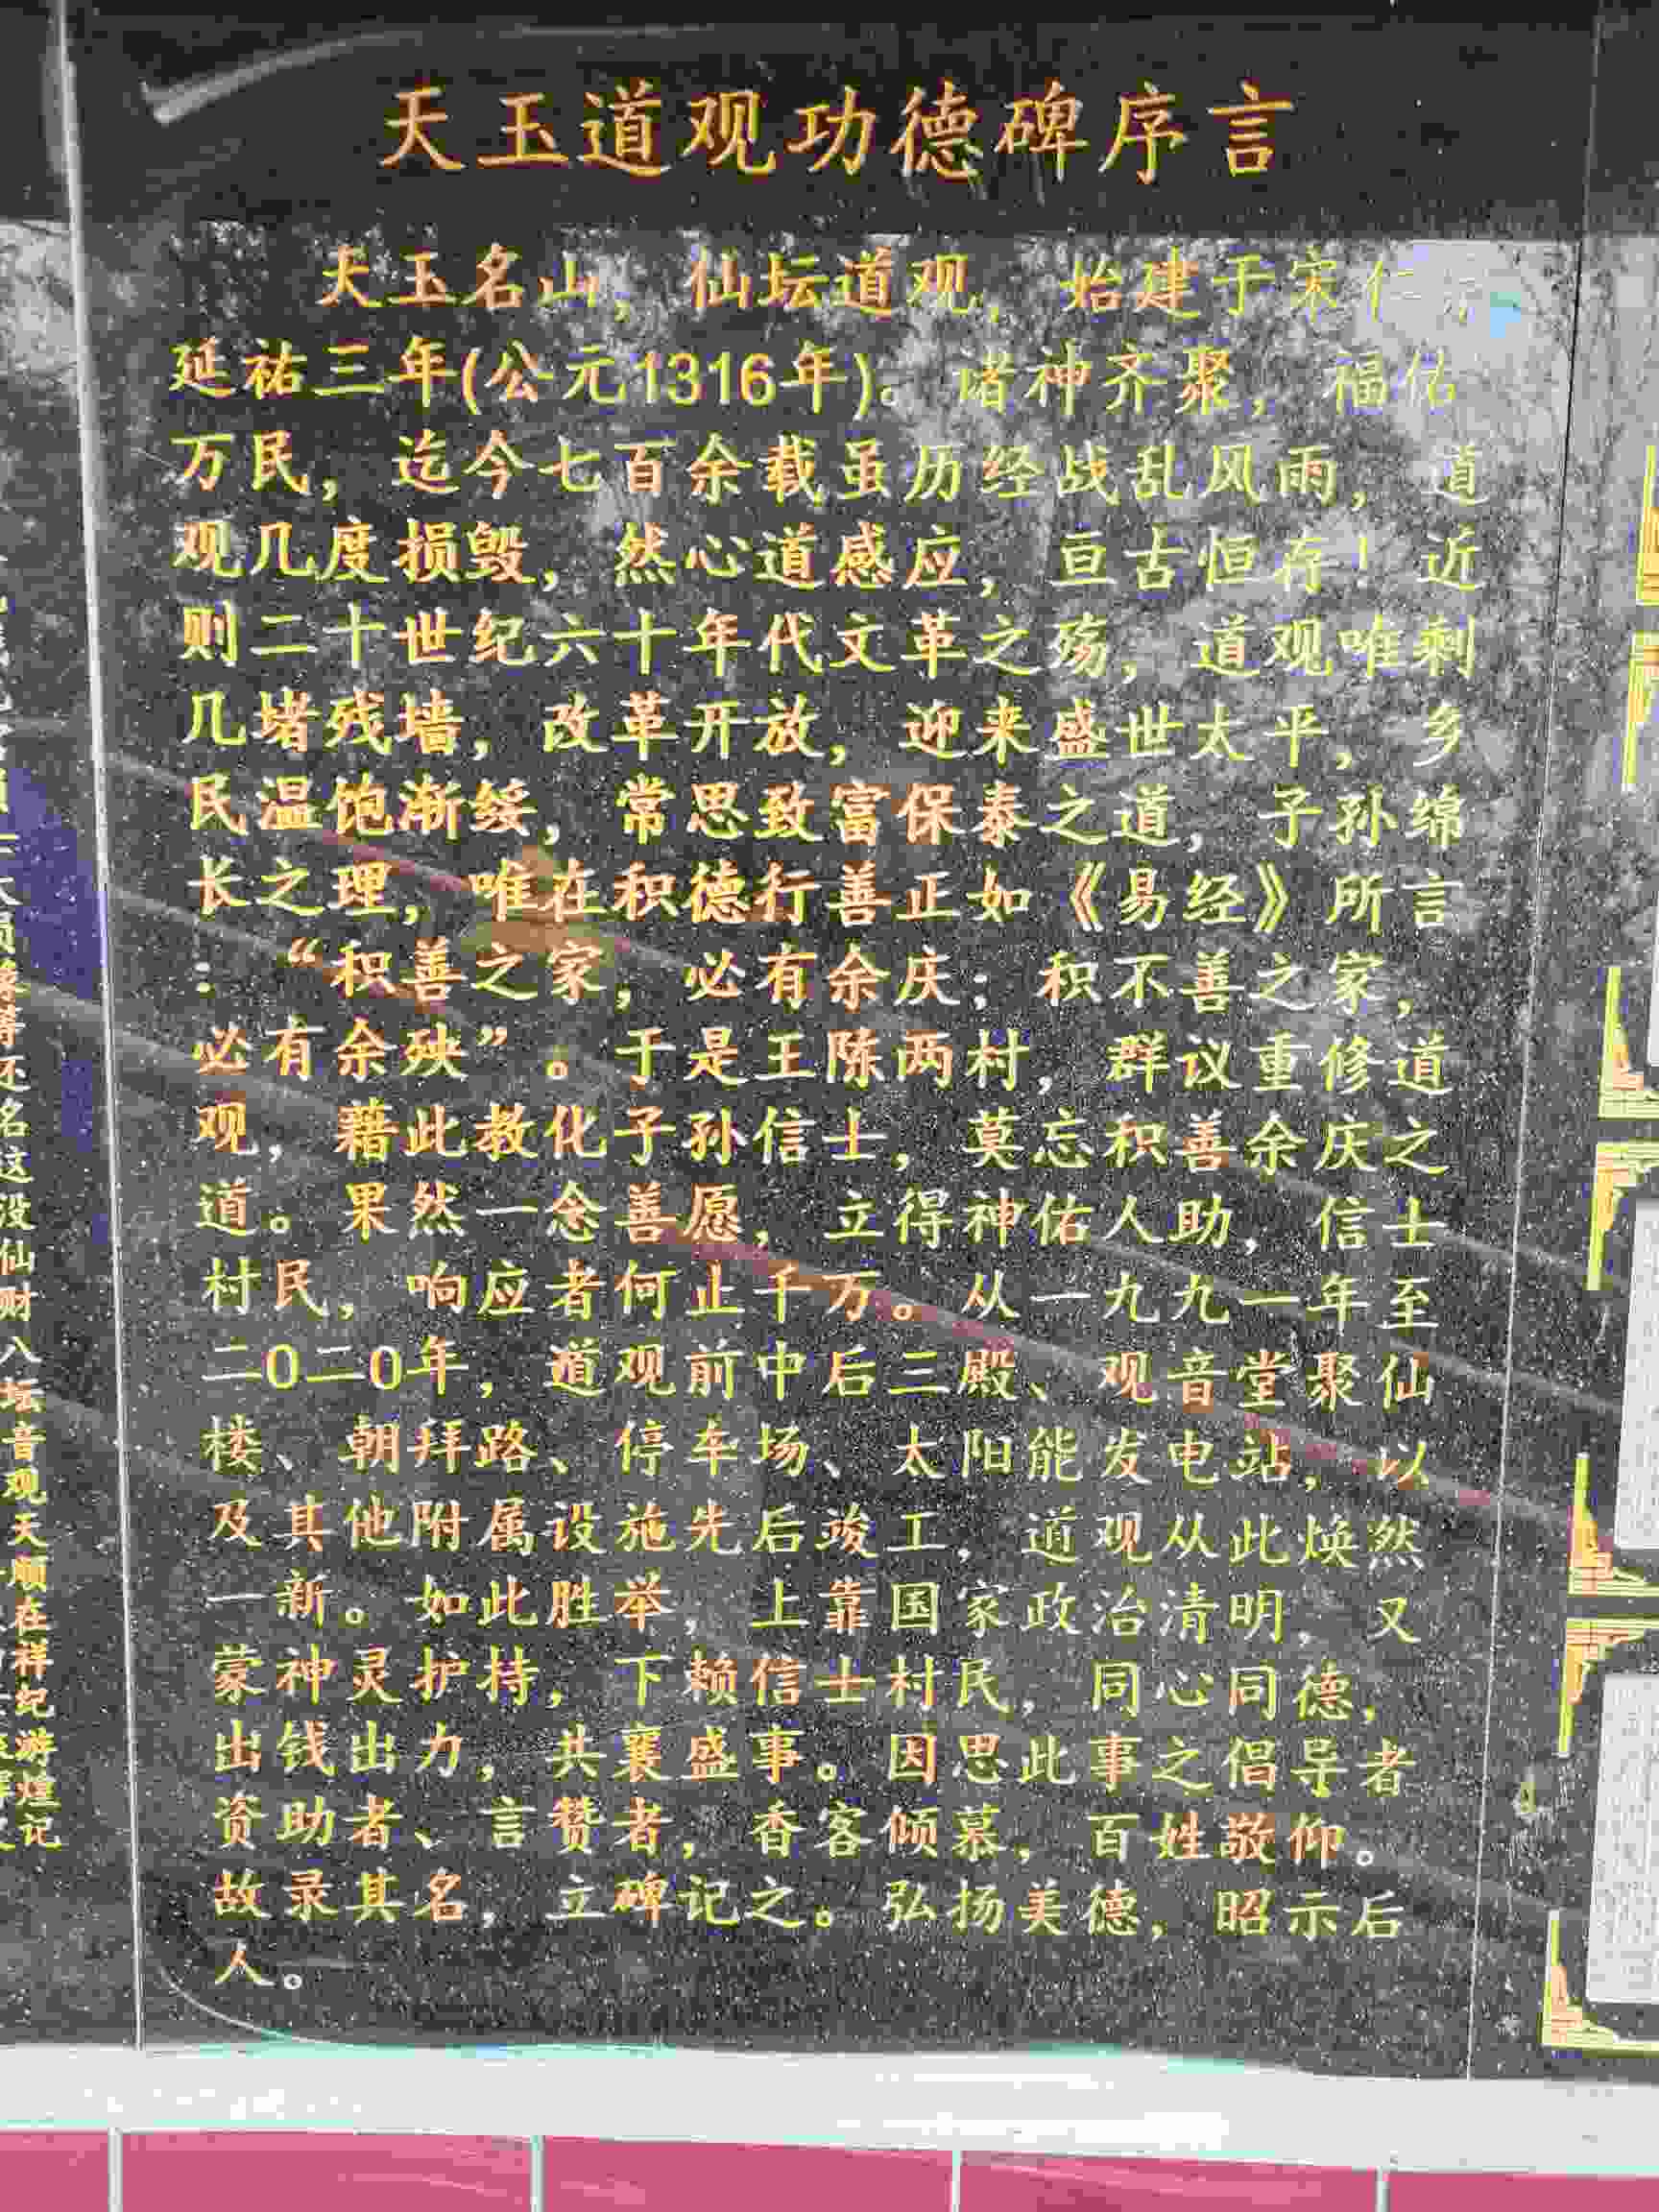 天玉道观功德碑序言
天玉名山，仙坛道观，始建于宋仁宗
延祐三年(公元1316年)。诸神齐聚，福佑
万民，迄今七百余载虽历经战乱风雨，道
观几度损毁，然心道感应，亘古恒存！近
则二十世纪六十年代文革之殇，道观唯剩
几堵残墙，改革开放，迎来盛世太平，乡
民温饱渐绥，常思致富保泰之道，子孙绵
长之理，唯在积德行善正如《易经》所言
：“积善之家，必有余庆；积不善之家，
必有余殃”。于是王陈两村，群议重修道
观，藉此教化子孙信士，莫忘积善余庆之
道。果然一念善愿，立得神佑人助，信士
村民，响应者何止千万。从一九九一年至
二0二0年，道观前中后三殿、观音堂聚仙
楼、朝拜路、停车场、太阳能发电站，以
及其他附属设施先后竣工，道观从此焕然
一新。如此胜举，上靠国家政治清明，又
蒙神灵护持，下赖信士村民，同心同德，
出钱出力，共襄盛事。因思此事之倡导者
资助者、言赞者，香客倾慕，百姓敬仰。
故录其名，立碑记之。弘扬美德，昭示后
人。